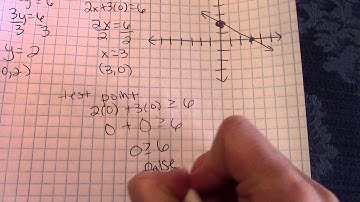 3y=6
3 3
y=2
0,2)
2x+3(0)=6
2x=6
2 2
x=3
(3,0)
test point
2(0)+3(0)≥6
0+0≥6
0≥6
false